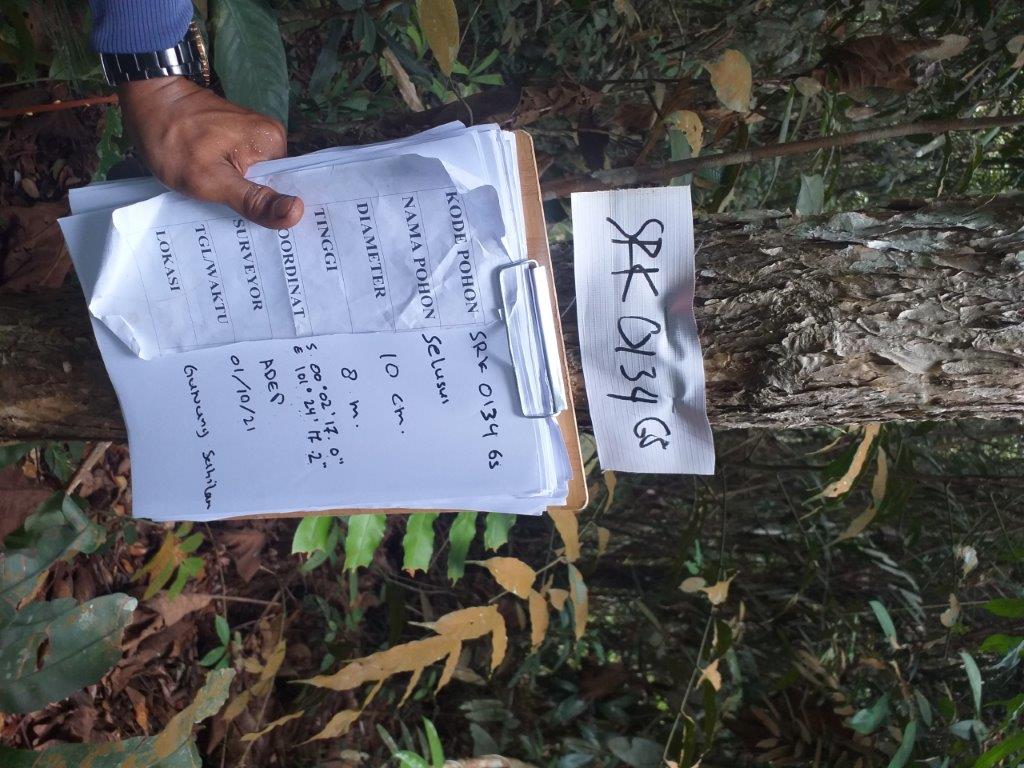 SRK 0134 GS
KODE POHON SRK 0134 GS
NAMA POHON Selusui
DIAMETER 10 cm.
TINGGI 8 m.
OORDINAT S. 00°.02'17.0"
E 101°.24'17.2"
SURVEYOR ADEP
TGL/WAKTU 01/10/21
LOKASI Gunung Sahilan